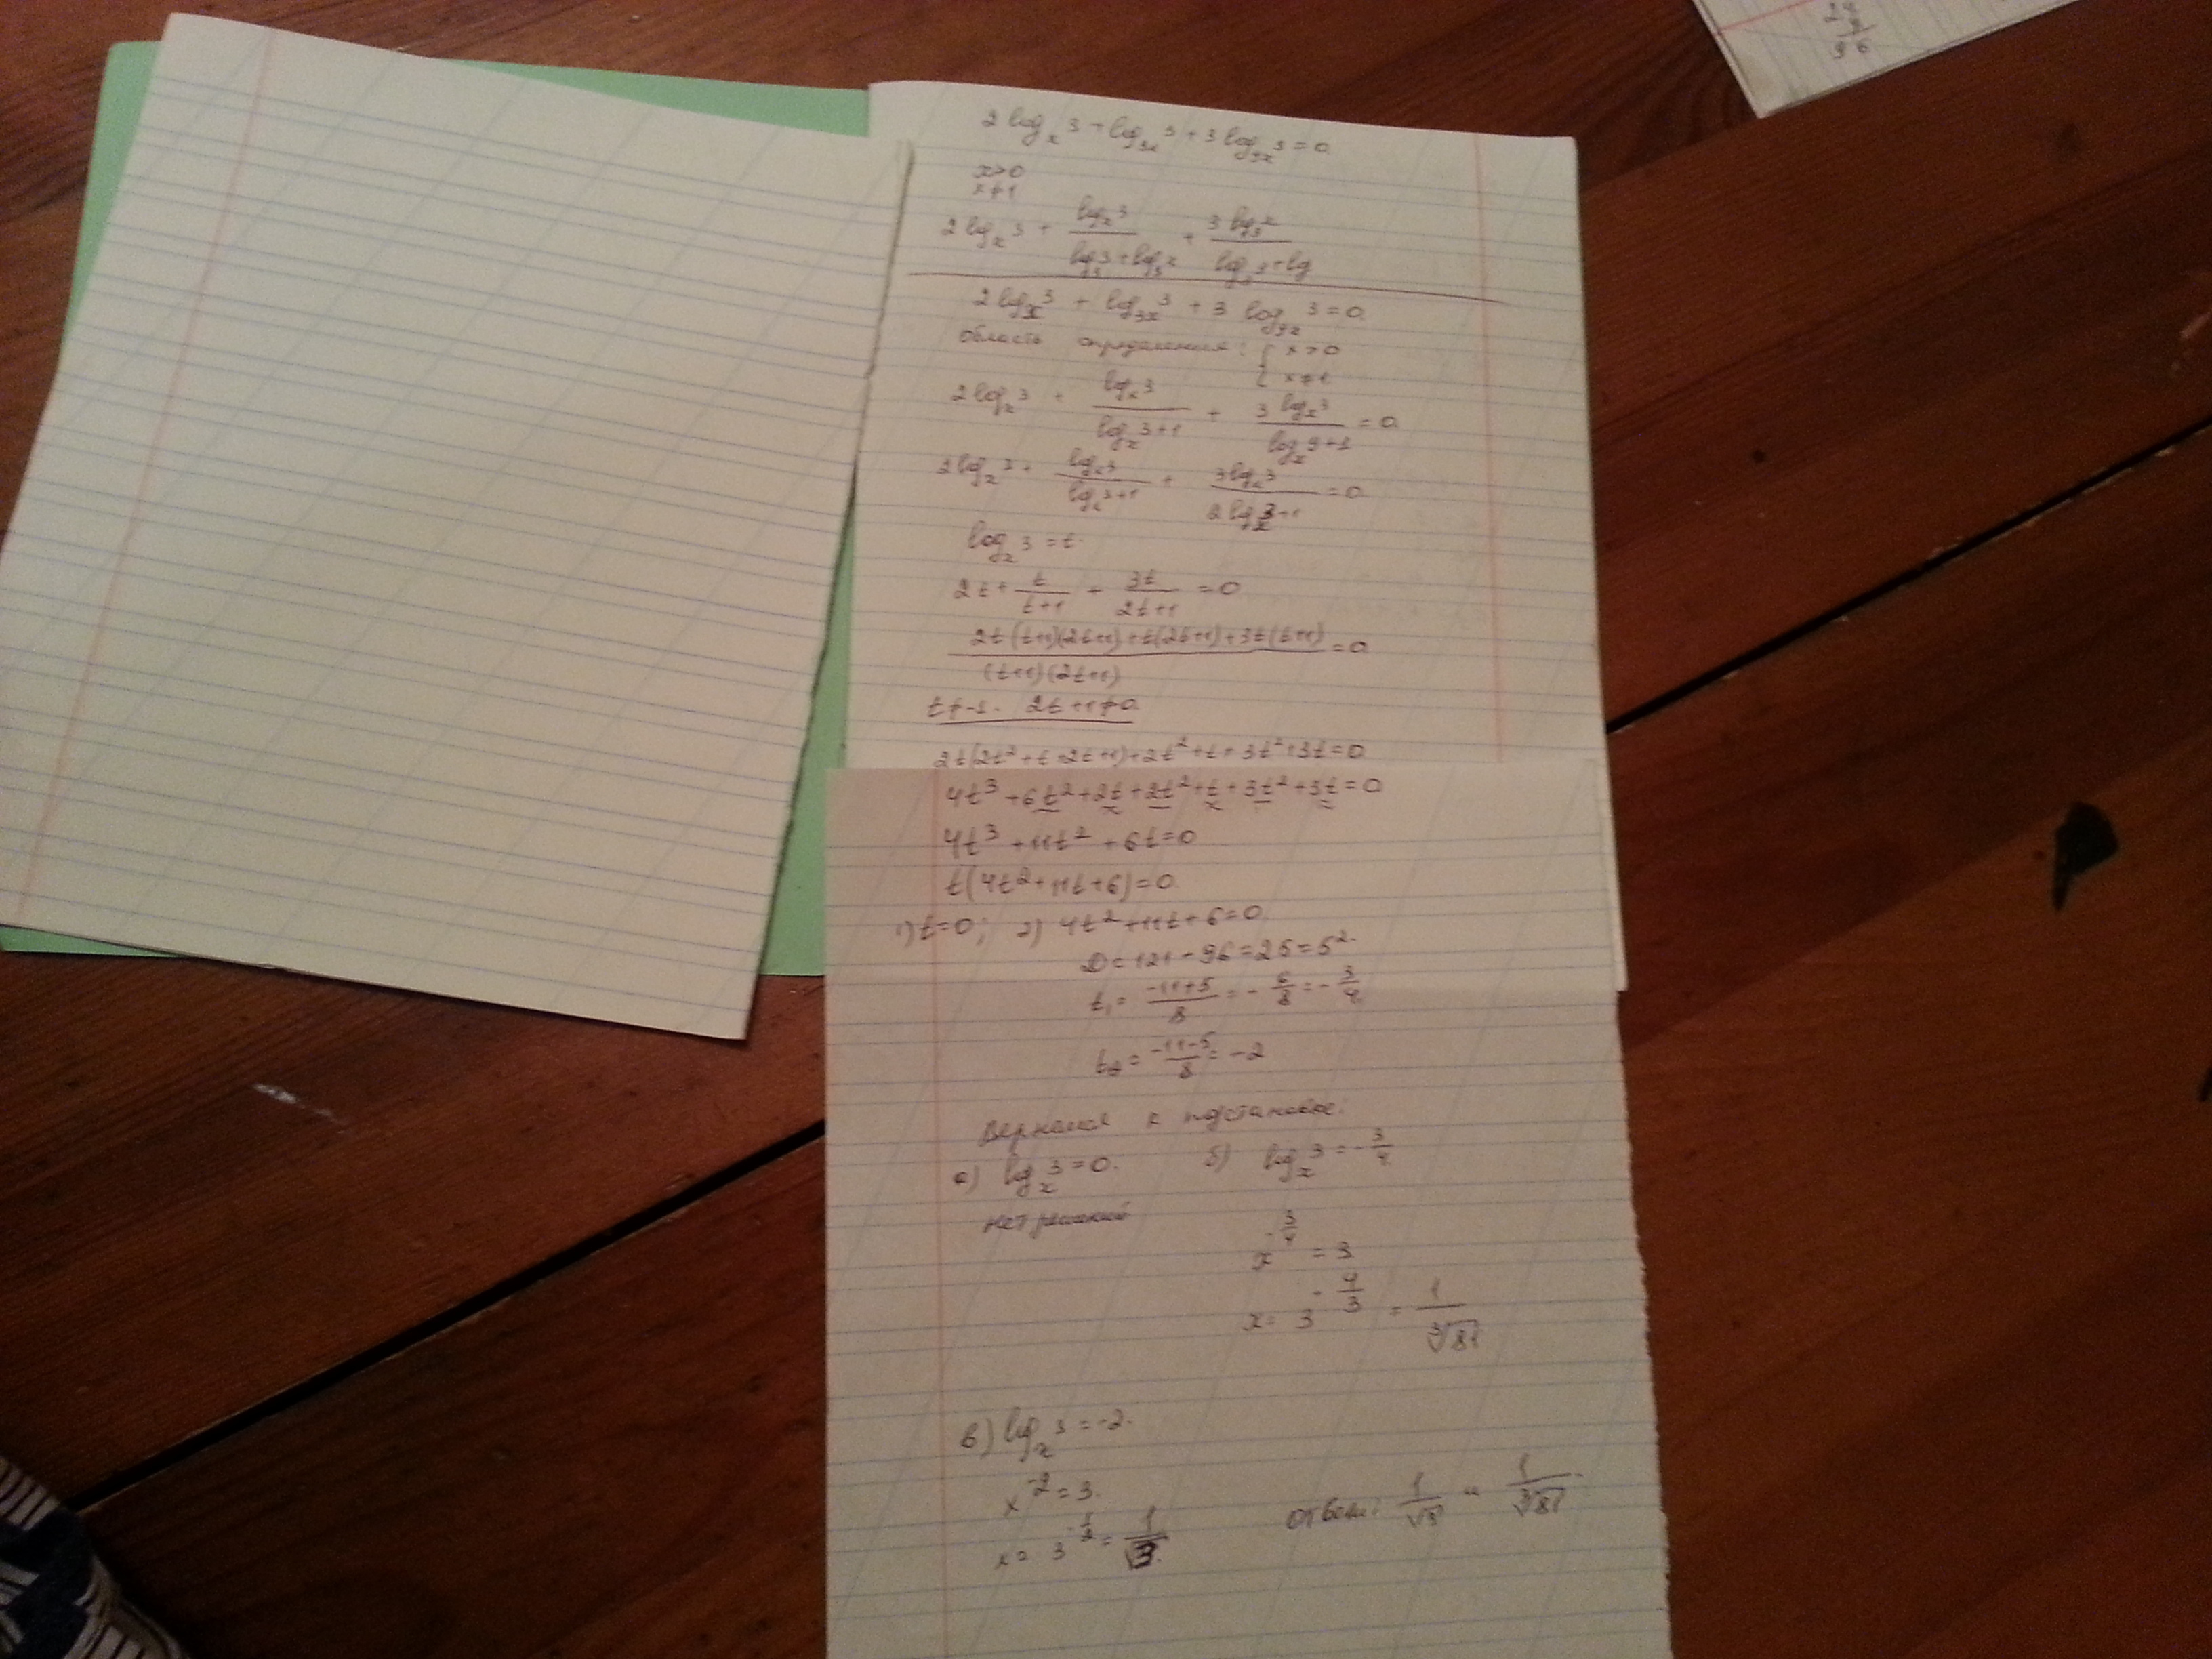 2 log_x 3 + log_3x 3 + 3 log_9x 3 = 0
x>0
x≠1
2 log_x 3 + (log_x 3)/(log_3 3 + log_3 x) + (3 log_3 x)/(log_x 3 + log
2 log_x 3 + log_3x 3 + 3 log_9x 3 = 0
Область определения: { x>0
x≠1
2 log_x 3 + (log_x 3)/(log_x 3+1) + (3 log_x 3)/(log_x 9+1) = 0
2 log_x 3 + (log_x 3)/(log_x 3+1) + (3 log_x 3)/(2 log_x 3+1) = 0
log_x 3 = t
2t + t/(t+1) + 3t/(2t+1) = 0
(2t(t+1)(2t+1)+t(2t+1)+3t(t+1))/((t+1)(2t+1)) = 0
t≠-1. 2t+1≠0
2t(2t²+t+2t+1)+2t²+t+3t²+3t=0
4t³+6t²+2t+2t²+t+3t²+3t=0
4t³+11t²+6t=0
t(4t²+11t+6)=0
1) t=0; 2) 4t²+11t+6=0
D=121-96=25=5²
t₁ = (-11+5)/8 = -6/8 = -3/4
t₂ = (-11-5)/8 = -2
Вернемся к подстановке:
а) log_x 3 = 0. б) log_x 3 = -3/4
нет решений
x^(-3/4) = 3
x = 3^(-4/3) = 1/∛81
в) log_x 3 = -2.
x^(-2) = 3.
x = 3^(-1/2) = 1/√3
Ответ: 1/√3 и 1/∛81